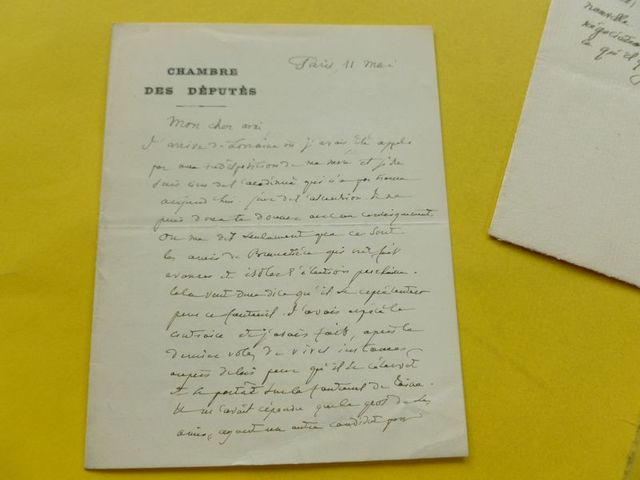 CHAMBRE
DES DÉPUTÉS
Paris 11 mai
Mon cher ami
J'arrive de Lorraine où j'avais été appelé
par une indisposition de ma mère et je ne
sais rien de l'académie qui n'a pas tenu
aujourd'hui jour de l'ascension. Je ne
puis donc te donner aucun renseignement
On me dit seulement que ce sont
les amis de Brunetière qui ont fait
avancer et isoler l'élection prochaine.
Cela veut dire qu'il se
pour ce fauteuil. J'avais
contraire et j'avais fait, après le
dernier vote, de vives instances
auprès de lui pour qu'il se
et se portât sur le fauteuil de
Il m'avait répondu que le gros de ses
amis, ayant un autre candidat pour
nouvelle